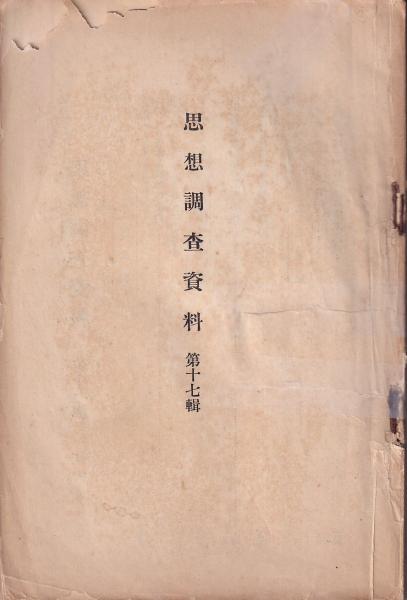 思想調査資料 第十七輯